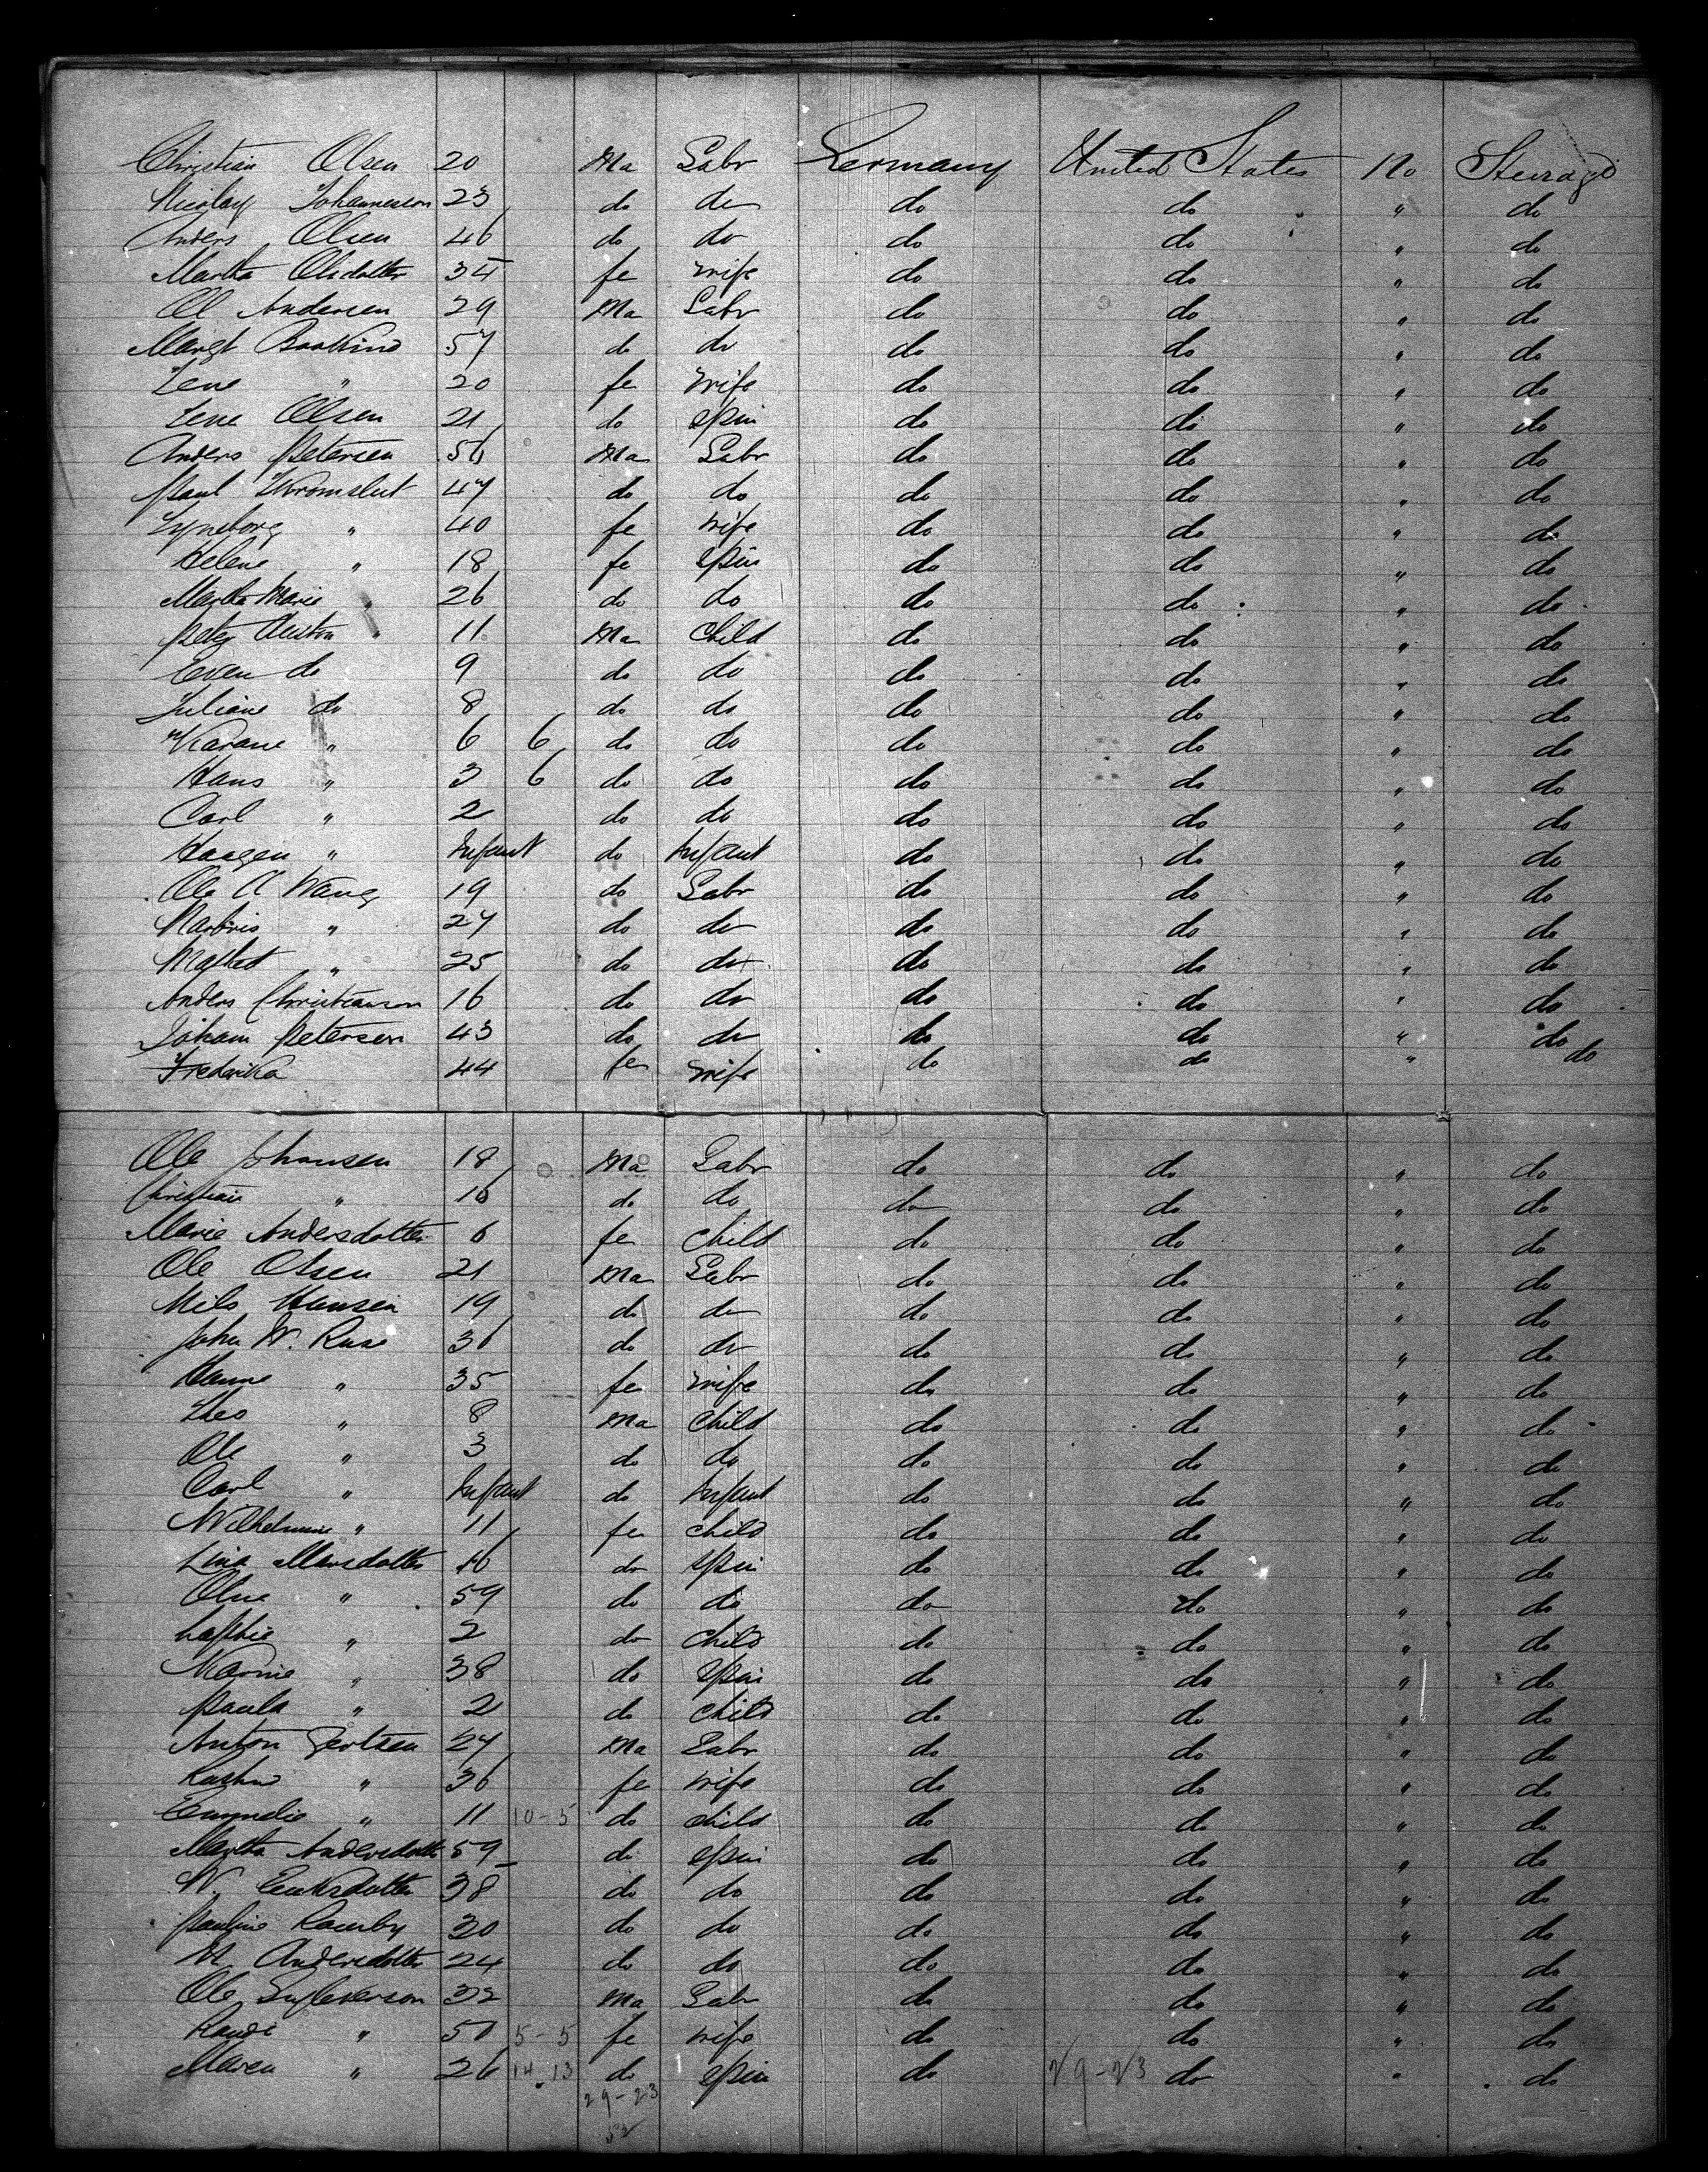 Christian Olsen 20 Ma Labr Germany United States No Steerage
Nicolay Johannesson 23 do do do do " do
Anders Olsen 46 do do do do " do
Martha Olsdatter 34 fe wife do do " do
Ol Andersen 29 Ma Labr do do " do
Margt 57 do do do do " do
Lene " 20 fe wife do do " do
Lene Olsen 21 do spin do do " do
Anders Petersen 56 Ma Labr do do " do
Paul 47 do do do do " do
" 40 fe wife do do " do
Helene " 18 fe spin do do " do
Martha Marie " 26 do do do do " do
Peter " 11 Ma Child do do " do
Even do 9 do do do do " do
Juliane do 8 do do do do " do
Karane " 6 6 do do do do " do
Hans " 3 6 do do do do " do
Carl " 2 do do do do " do
Haagen " Infant do Infant do do " do
Ole A Wang 19 do Labr do do " do
" 27 do do do do " do
" 25 do do do do " do
Anders Christianson 16 do do do do " do
Johann Petersen 43 do do do do " do
Frederika 44 fe wife do do " do
Ole Johansen 18 Ma Labr do do " do
Christian " 16 do do do do " do
Marie Andersdatter 6 fe Child do do " do
Ole Olsen 21 Ma Labr do do " do
Nils Hansen 19 do do do do " do
John W. Ruse 36 do do do do " do
Hanne " 35 fe wife do do " do
Theo " 8 Ma Child do do " do
Ole " 3 do do do do " do
Carl " Infant do Infant do do " do
Wilhelmine " 11 fe child do do " do
Lina 16 do spin do do " do
Oline " 59 do do do do " do
" 2 do child do do " do
" 38 do spin do do " do
Paula " 2 do child do do " do
Anton 27 Ma Labr do do " do
" 36 fe wife do do " do
" 11 10-5 do child do do " do
Martha Andersdatter 59 do spin do do " do
38 do do do do " do
Pauline 30 do do do do " do
M Andersdatter 24 do do do do " do
Ole 32 Ma Labr do do " do
Randi " 50 5-5 fe wife do do " do
Maren " 26 14.13 do spin do 29-23 do " do
29-23
52